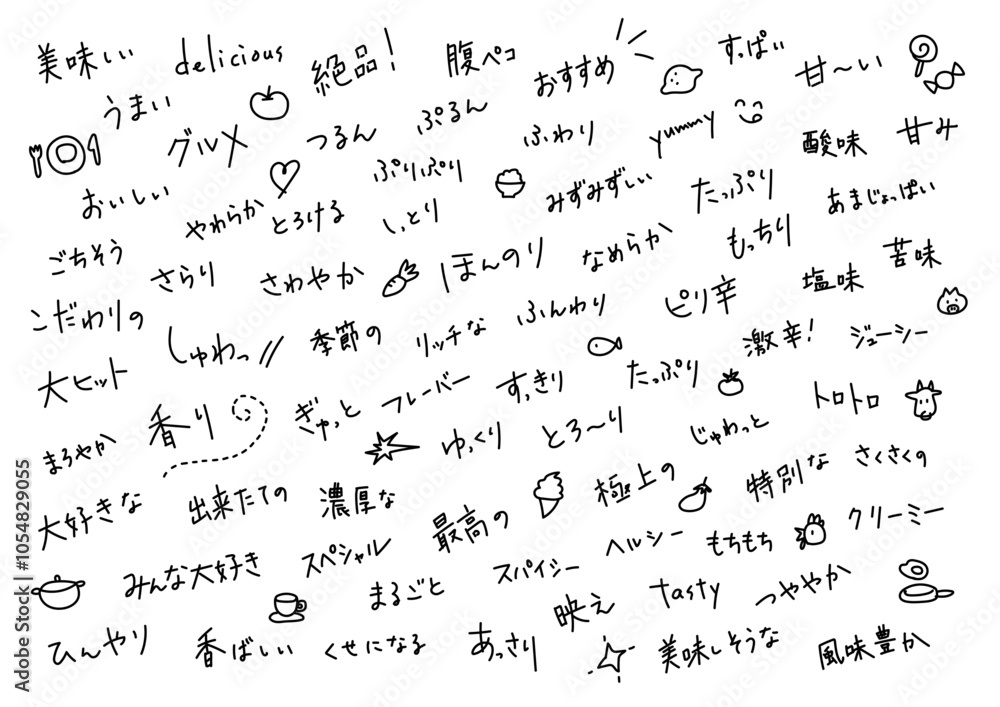 美味しい delicious 絶品! 腹ペコ おすすめ すっぱい 甘〜い
うまい グルメ つるん ぷるん ふわり yummy 酸味 甘み
おいしい やわらか とろける ぷりぷり しっとり みずみずしい たっぷり あまじょっぱい
ごちそう さらり さわやか ほんのり なめらか もっちり 塩味 苦味
こだわりの しゅわっ 季節の リッチな ふんわり ピリ辛 激辛! ジューシー
大ヒット 香り ぎゅっと フレーバー すっきり たっぷり トロトロ
まろやか ゆっくり とろ〜り じゅわっと
大好きな 出来たての 濃厚な 最高の 極上の 特別な さくさくの
みんな大好き スペシャル まるごと スパイシー ヘルシー もちもち クリーミー
ひんやり 香ばしい くせになる あっさり 映え tasty つややか
美味しそうな 風味豊か
Adobe Stock | #1054829055